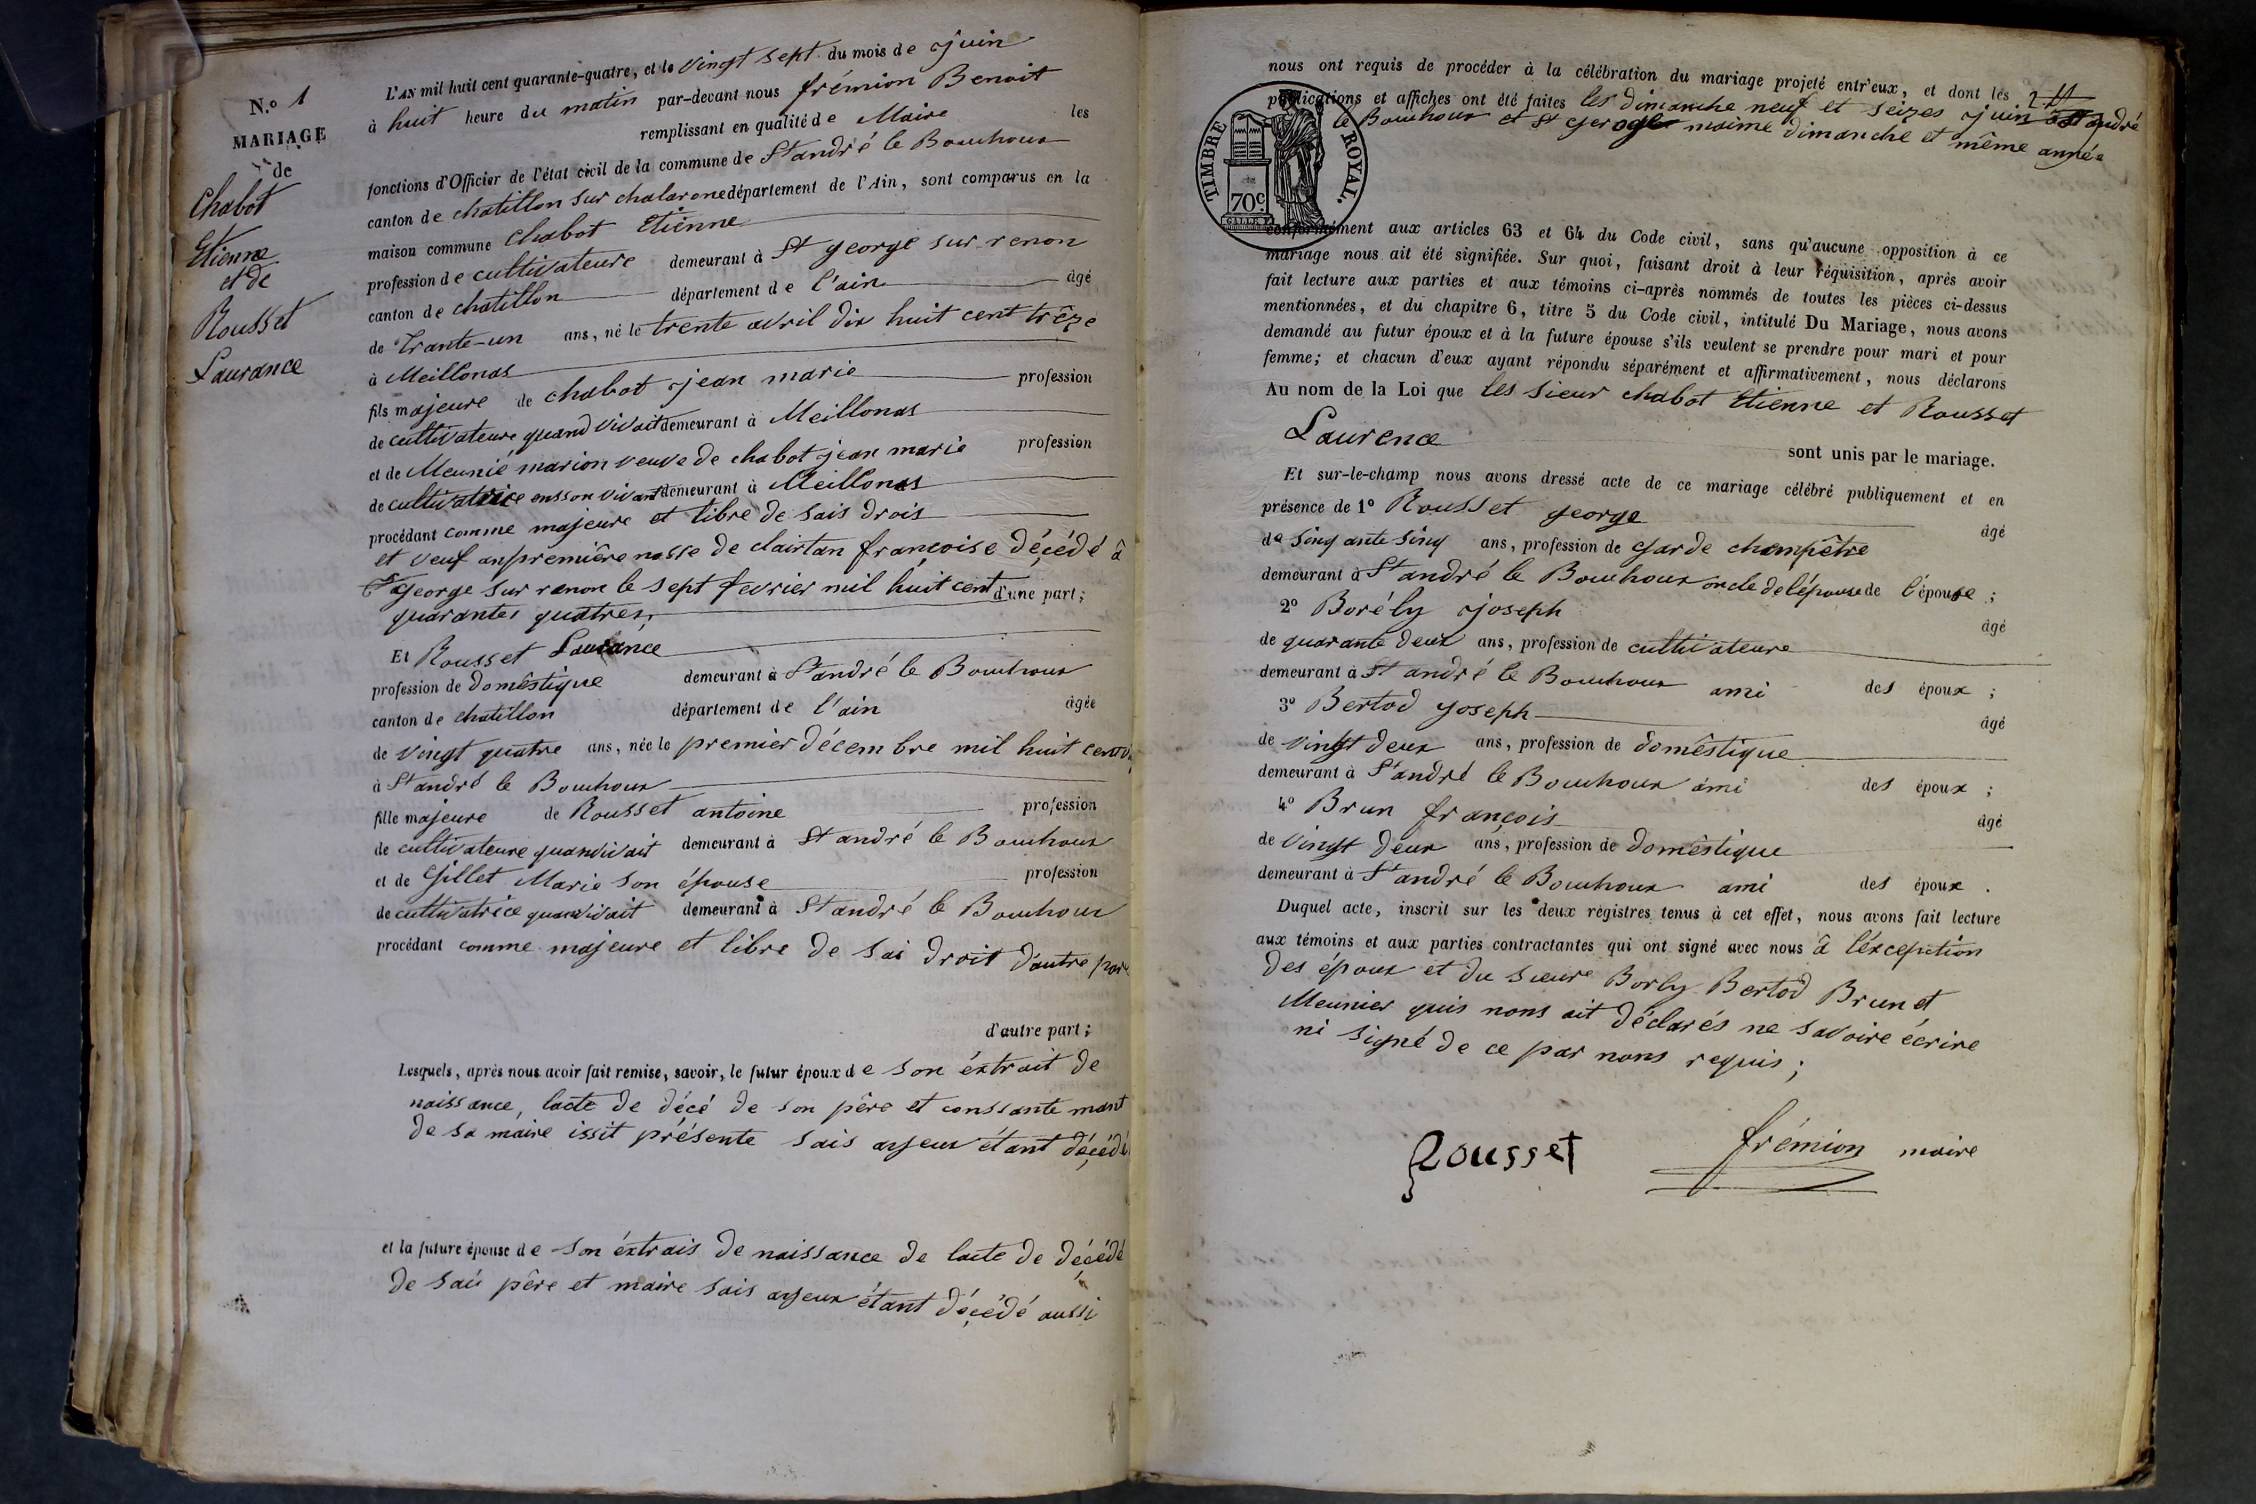 N.o 1
MARIAGE
de
Chabot
Etienne
et de
Rousset
Laurance
L'AN mil huit cent quarante-quatre, et le vingt sept du mois de juin
à huit heure du matin par-devant nous frémion Benoit
remplissant en qualité de Maire les
fonctions d'Officier de l'état civil de la commune de St andré le Bouchoux
canton de chatillon sur chalarone département de l'Ain, sont comparus en la
maison commune chabot Etienne
profession de cultivateure demeurant à St george sur renon
canton de chatillon département de l'ain âgé
de trante-un ans, né le trente avril dix huit cent trêze
à Meillonas
fils majeure de chabot jean marie profession
de cultivateure quand vivait demeurant à Meillonas
et de Meunié marion veuve de chabot jean marie profession
de cultivatrice ensson vivant demeurant à Meillonas
procédant comme majeure et libre de sais drois
et veuf anpremière nosse de clairtan françoise décédé â
St george sur renon le sept fevrier mil huit cent d'une part;
quarantes quatres,
Et Rousset Laurance
profession de domêstique demeurant à St andré le Bouchoux
canton de chatillon département de l'ain âgée
de vingt quatre ans, née le premier décembre mil huit cent
à St andré le Bouchoux
fille majeure de Rousset antoine profession
de cultivateure quanvivait demeurant à St andré le Bouchoux
et de Gillet Marie son épouse profession
de cultivatrice quanvivait demeurant à St andré le Bouchoux
procédant comme majeure et libre de sai droit d'autre part
d'autre part;
Lesquels, après nous avoir fait remise, savoir, le futur époux de son éxtrait de
naissance, lacte de décé de son père et conssante mant
de sa maire issit présente sais ayeux étant décédé
et la future épouse de son éxtrais de naissance de lacte de décédé
de sai père et maire sais ayeux étant décédé aussi
nous ont requis de procéder à la célébration du mariage projeté entr'eux, et dont les 2
publications et affiches ont été faites les dimanche neuf et seizes juin a St andré
le Bouchoux et St george maime dimanche et même année
TIMBRE ROYAL.
70c.
conformément aux articles 63 et 64 du Code civil, sans qu'aucune opposition à ce
mariage nous ait été signifiée. Sur quoi, faisant droit à leur réquisition, après avoir
fait lecture aux parties et aux témoins ci-après nommés de toutes les pièces ci-dessus
mentionnées, et du chapitre 6, titre 5 du Code civil, intitulé Du Mariage, nous avons
demandé au futur époux et à la future épouse s'ils veulent se prendre pour mari et pour
femme; et chacun d'eux ayant répondu séparément et affirmativement, nous déclarons
Au nom de la Loi que les sieur chabot Etienne et Rousset
Laurence
sont unis par le mariage.
Et sur-le-champ nous avons dressé acte de ce mariage célébré publiquement et en
présence de 1o Rousset george âgé
de sinq ante sinq ans, profession de garde champêtre
demeurant à St andré le Bouchoux oncle de lépouse de l'épouse ;
2o Borély joseph âgé
de quarante deux ans, profession de cultivateure
demeurant à St andré le Bouchoux ami des époux ;
3o Bertod joseph âgé
de vingt deux ans, profession de domêstique
demeurant à St andré le Bouchoux ami des époux ;
4o Brun françois âgé
de vingt deux ans, profession de domêstique
demeurant à St andré le Bouchoux ami des époux .
Duquel acte, inscrit sur les deux registres tenus à cet effet, nous avons fait lecture
aux témoins et aux parties contractantes qui ont signé avec nous â léxception
des époux et du sieure Borly Bertod Brun et
Meunier quis nons ait déclarés ne savoire écrire
ni signé de ce par nons requis;
Rousset frémion maire